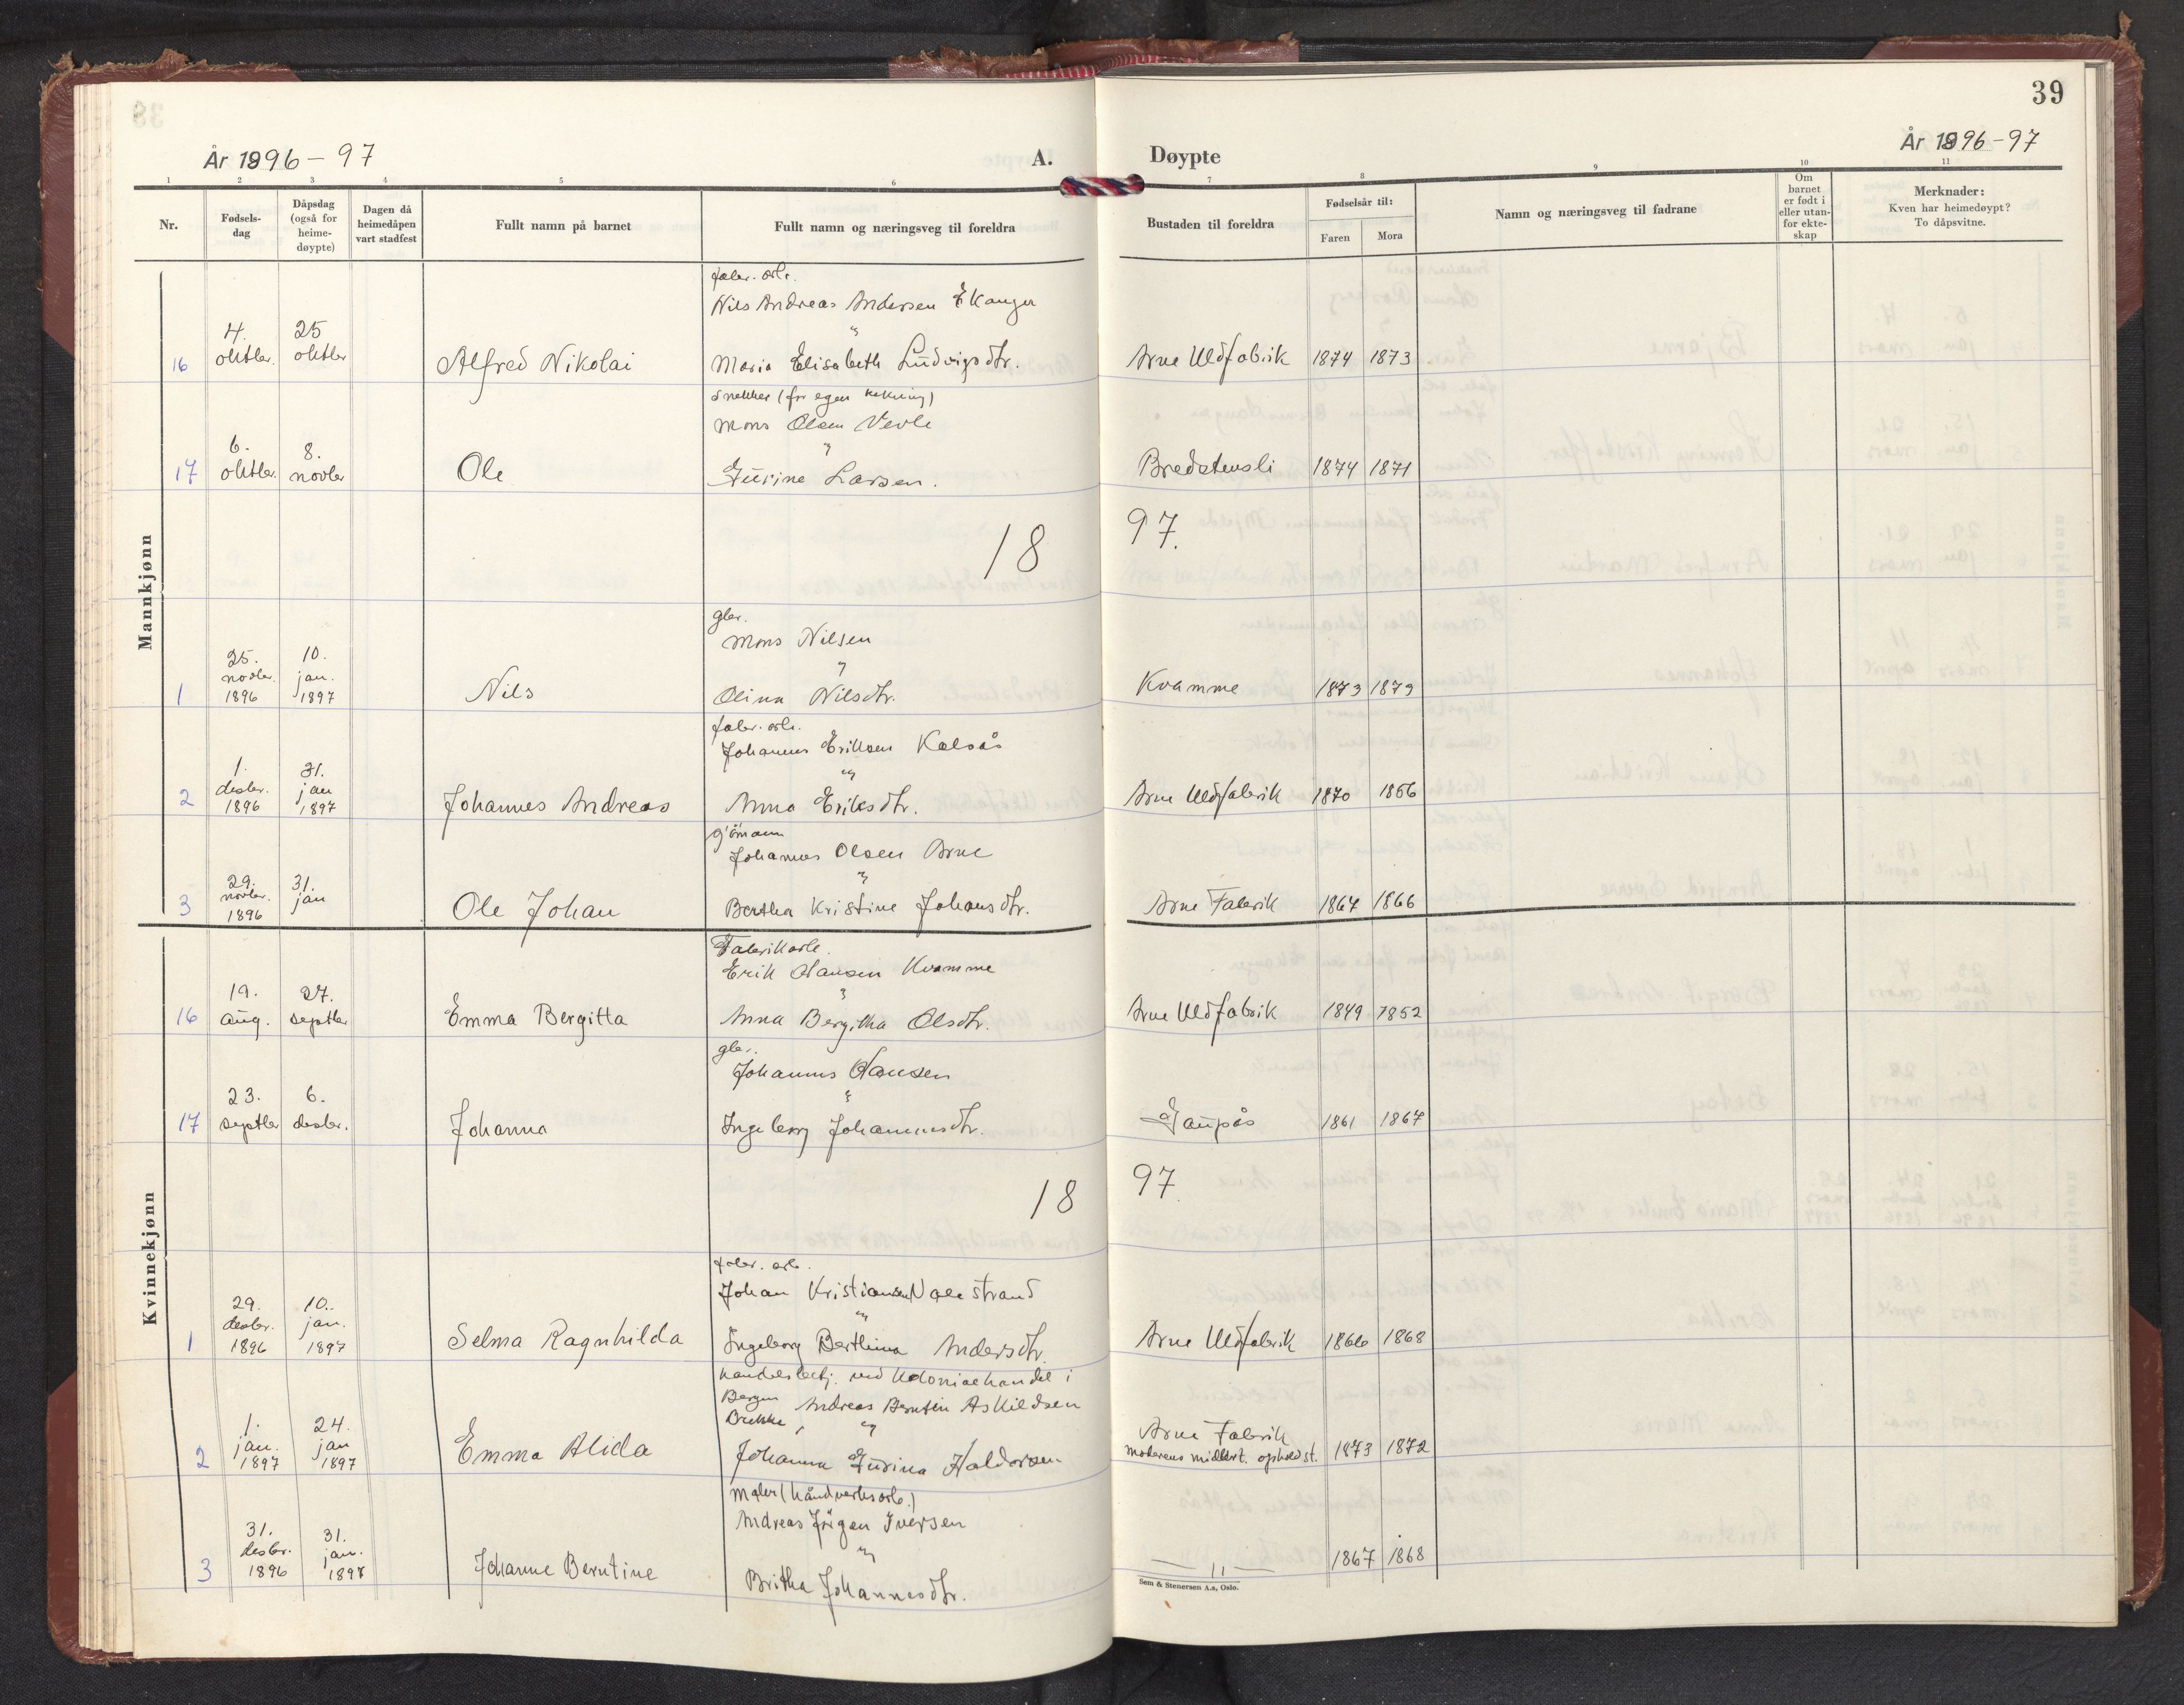 39
År 1896-97
A.
Døypte
År 1896-97
1 2 3 4 5 6 7 8 9 10 11
Nr.
Fødsels-
dag
Dåpsdag
(også for
heime-
døypte)
Dagen då
heimedåpen
vart stadfest
Fullt namn på barnet
Fullt namn og næringsveg til foreldra
Bustaden til foreldra
Fødselsår til:
Faren
Mora
Namn og næringsveg til fadrane
Om
barnet
er født i
eller utan-
for ekte-
skap
Merknader:
Kven har heimedøypt?
To dåpsvitne.
Mannkjønn
fabr. arb.
Nils Andreas Andersen Ekanger
"
4. 25
16 oktbr. oktbr Alfred Nikolai Maria Elisabeth Ludvigsdtr. Arne Uldfabrik 1874 1873
Snekker (for egen rekning)
Mons Olsen Vevle
"
6. 8.
17 oktbr. novbr Ole Gurine Larsen. Bredstensli 1874 1871
18 97.
gbr.
Mons Nilsen
"
25. 10.
novbr. jan.
1 1896 1897 Nils Olina Nilsdtr. Kvamme 1873 1879
fabr. arb.
Johannes Eriksen Kalsås
"
1. 31.
desbr. jan
2 1896 1897 Johannes Andreas Anna Eriksdtr. Arne Uldfabrik 1870 1856
g'mann
Johannes Olsen Arne
"
29. 31.
novbr. jan
3 1896 Ole Johan Bertha Kristine Johansdtr. Arne Fabrik 1867 1866
Kvinnekjønn
Fabrikarb.
Erik Hansen Kvamme
"
19. 27.
16 aug. septbr Emma Bergitta Anna Bergitha Olsdtr. Arne Uldfabrik 1849 1852
gbr.
Johannes Hansen
"
23. 6.
17 septbr desbr. Johanna Ingeborg Johannesdtr. Gaupås 1861 1867
18 97.
fabr. arb.
Johan Kristiansen Valestrand
"
29. 10.
desbr. jan.
1 1896 1897 Selma Ragnhilda Ingeborg Berthina Andersdtr. Arne Uldfabrik 1866 1868
handelsbetj. ved kolonialhandel i
Bergen Andreas Berntin Askildsen
Brekke, "
1. 24.
jan. jan
2 1897 1897 Emma Alida Johanna Gurina Haldorsen Arne Fabrik
moderens midlert. opholdst. 1873 1872
Maler (håndverksarb.)
Andreas Jörgen Iversen
"
31. 31.
desbr. jan.
3 1896 1897 Johanne Berntine Britha Johannesdtr. — 11 — 1867 1868
Sem & Stenersen A.s, Oslo.